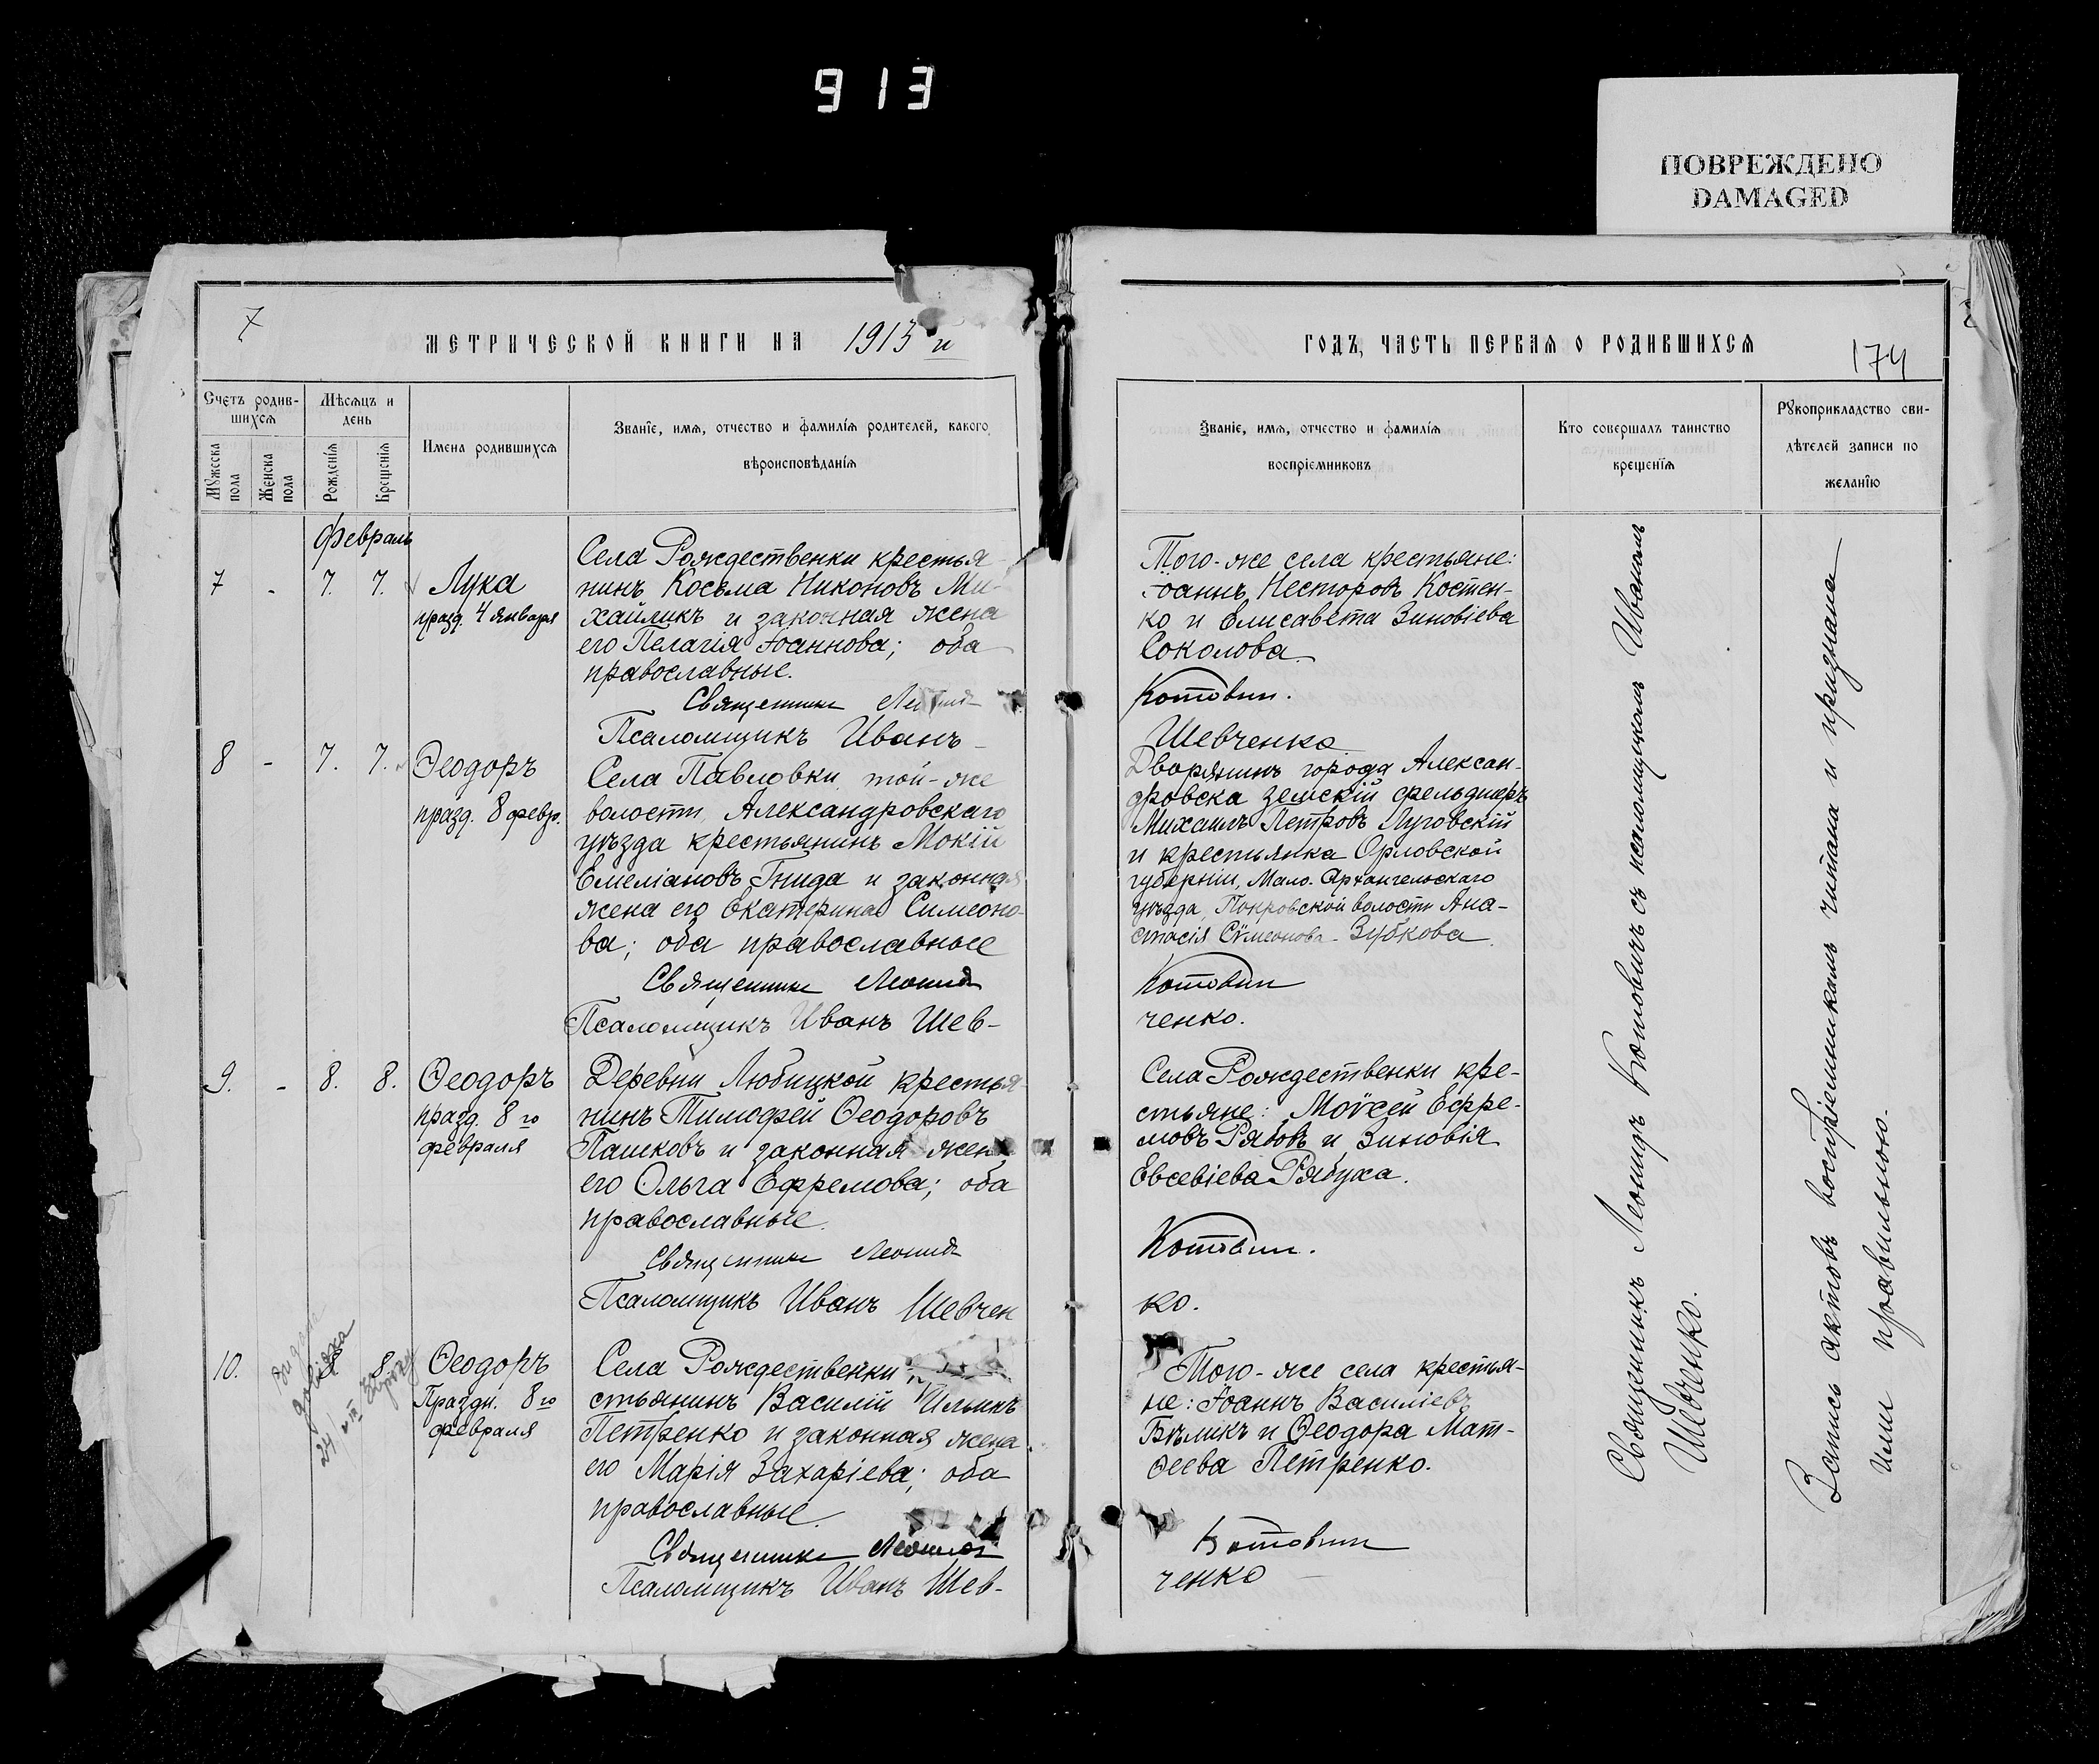 913
ПОВРЕЖДЕНО
DAMAGED
7
МЕТРИЧЕСКОЙ КНИГИ НА 1913 й
Счетъ родив-
шихся
Мѣсяцъ и
день
Мужеска
пола
Женска
пола
Рожденія
Крещенія
Имена родившихся
Званіе, имя, отчество и фамилія родителей, какого
вѣроисповѣданія
Февраль
7 - 7. 7. Лука
празд. 4 января
Села Рождественки крестья-
нинъ Косьма Никоновъ Ми-
хайликъ и законная жена
его Пелагія Іоаннова; оба
православные.
Священникъ Леонидъ
Псаломщикъ Иванъ
8 - 7. 7. Ѳеодоръ
празд. 8 февр.
Села Павловки, той-же
волости, Александровскаго
уѣзда крестьянинъ Мокій
Емеліановъ Гнида и законная
жена его Екатерина Симеоно-
ва; оба православные
Священникъ Леонидъ
Псаломщикъ Иванъ Шев-
9. - 8. 8. Ѳеодоръ
празд. 8 го
февраля
Деревни Любицкой крестья-
нинъ Тимофей Ѳеодоровъ
Пашковъ и законная жена
его Ольга Ефремова; оба
православные.
Священникъ Леонидъ
Псаломщикъ Иванъ Шевчен
10. 8 8. Ѳеодоръ
Праздн. 8 го
февраля
Села Рождественки
стьянинъ Василій Ильинъ
Петренко и законная жена
его Марія Захаріева; оба
православные.
Священникъ Леонидъ
Псаломщикъ Иванъ Шев-
ГОДЪ, ЧАСТЬ ПЕРВАЯ О РОДИВШИХСЯ
174
Званіе, имя, отчество и фамилія
воспріемниковъ
Кто совершалъ таинство
крещенія
Рукоприкладство сви-
дѣтелей записи по
желанію
Того-же села крестьяне:
Іоаннъ Несторовъ Костен-
ко и Елисавета Зиновіева
Соколова.
Котовичъ.
Шевченко
Дворянинъ города Алексан-
дровска земскій фельдшеръ
Михаилъ Петровъ Луговскій
и крестьянка Орловской
губерніи, Мало-Архангельскаго
уѣзда, Покровской волости Ана-
стасія Сѵмеонова Зубкова.
Котовичъ
ченко.
Села Рождественки кре-
стьяне: Моѵсей Ефре-
мовъ Рябовъ и Зиновія
Евсевіева Рябуха.
Котовичъ.
ко.
Того-же села крестья-
не: Іоаннъ Василіевъ
Бѣликъ и Ѳеодора Мат-
ѳеева Петренко.
Котовичъ
ченко
Священникъ Леонидъ Котовичъ съ псаломщикомъ Иваномъ
Шевченко.
Запись актовъ воспріемникамъ читана и признана
ими правильною.